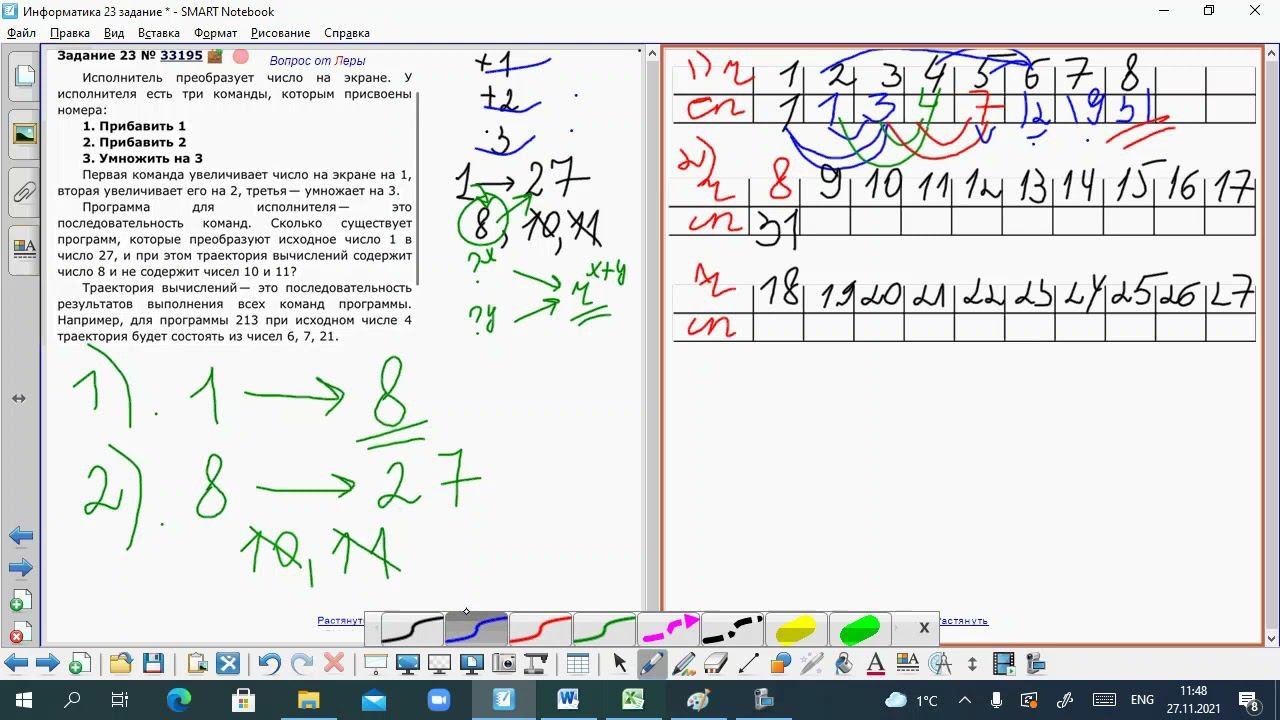 Информатика 23 задание * - SMART Notebook
Файл Правка Вид Вставка Формат Рисование Справка
Задание 23 № 33195 Вопрос от Леры
Исполнитель преобразует число на экране. У
исполнителя есть три команды, которым присвоены
номера:
1. Прибавить 1
2. Прибавить 2
3. Умножить на 3
Первая команда увеличивает число на экране на 1,
вторая увеличивает его на 2, третья — умножает на 3.
Программа для исполнителя — это
последовательность команд. Сколько существует
программ, которые преобразуют исходное число 1 в
число 27, и при этом траектория вычислений содержит
число 8 и не содержит чисел 10 и 11?
Траектория вычислений — это последовательность
результатов выполнения всех команд программы.
Например, для программы 213 при исходном числе 4
траектория будет состоять из чисел 6, 7, 21.
+1
+2
·3
1 → 27
8, 10, 11
?x
?y
ч x+y
1). 1 → 8
2). 8 → 27
10, 11
1) ч 1 2 3 4 5 6 7 8
сп 1 1 3 4 7 12 19 31
2)
ч 8 9 10 11 12 13 14 15 16 17
сп 31
ч 18 19 20 21 22 23 24 25 26 27
сп
Растянуть
x
Растянуть
1°C
ENG
11:48
27.11.2021
8